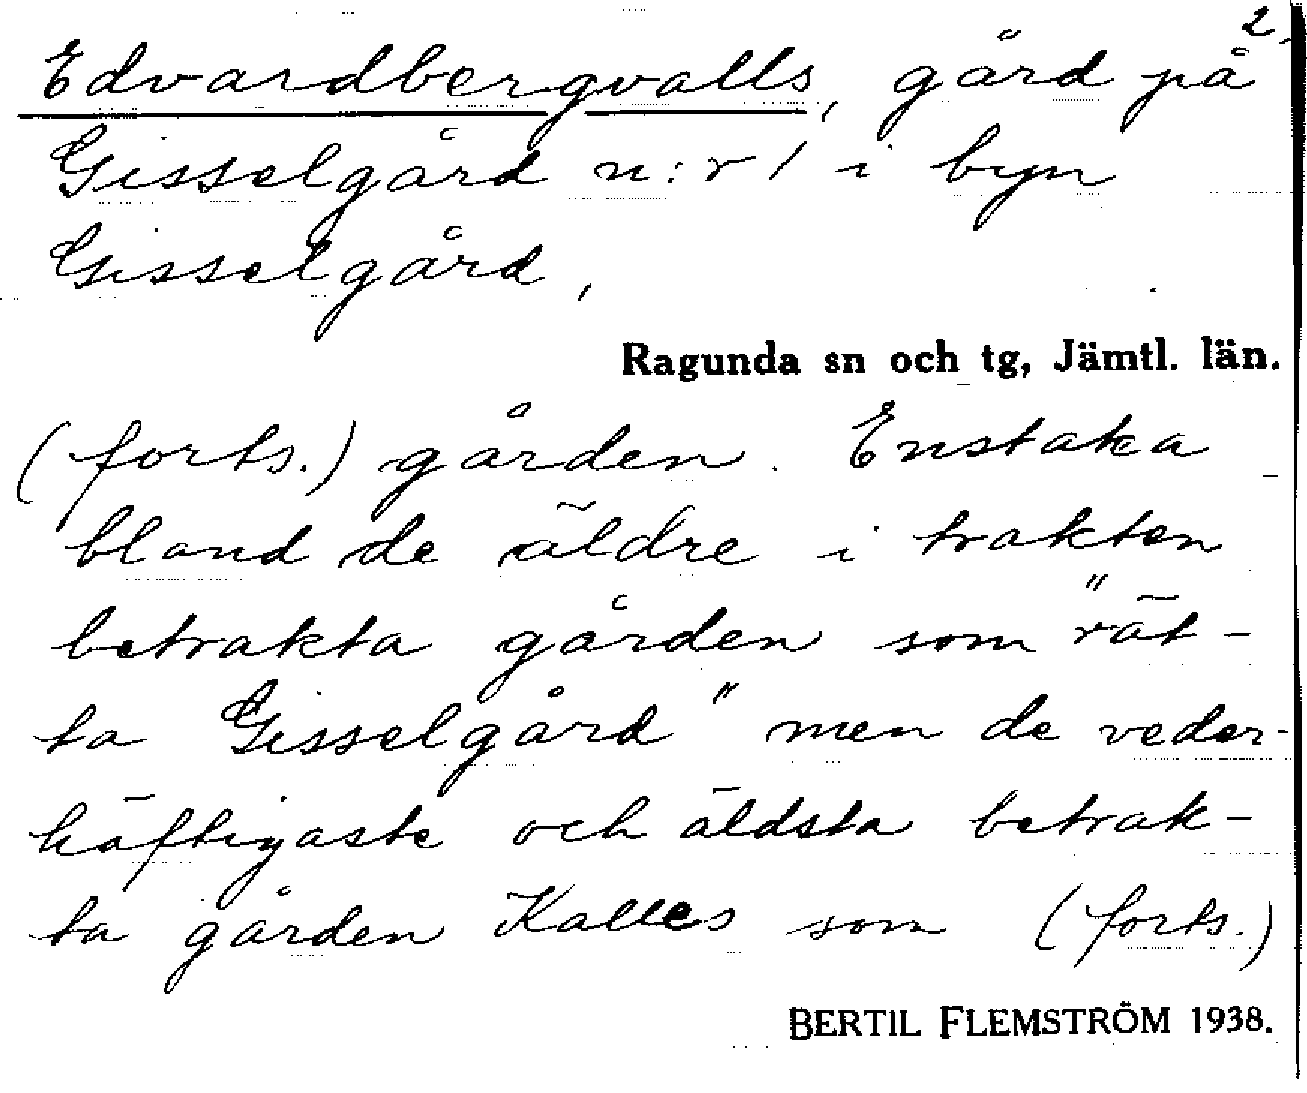 2.
Edvardbergvalls, gård på
Gisselgård n:r 1 i byn
Gisselgård,
Ragunda sn och tg, Jämtl. län.
(forts.) gården. Enstaka
bland de äldre i trakten
betrakta gården som "rät-
ta Gisselgård" men de veder-
häftigaste och äldsta betrak-
ta gården Kalles som (forts.)
BERTIL FLEMSTRÖM 1938.